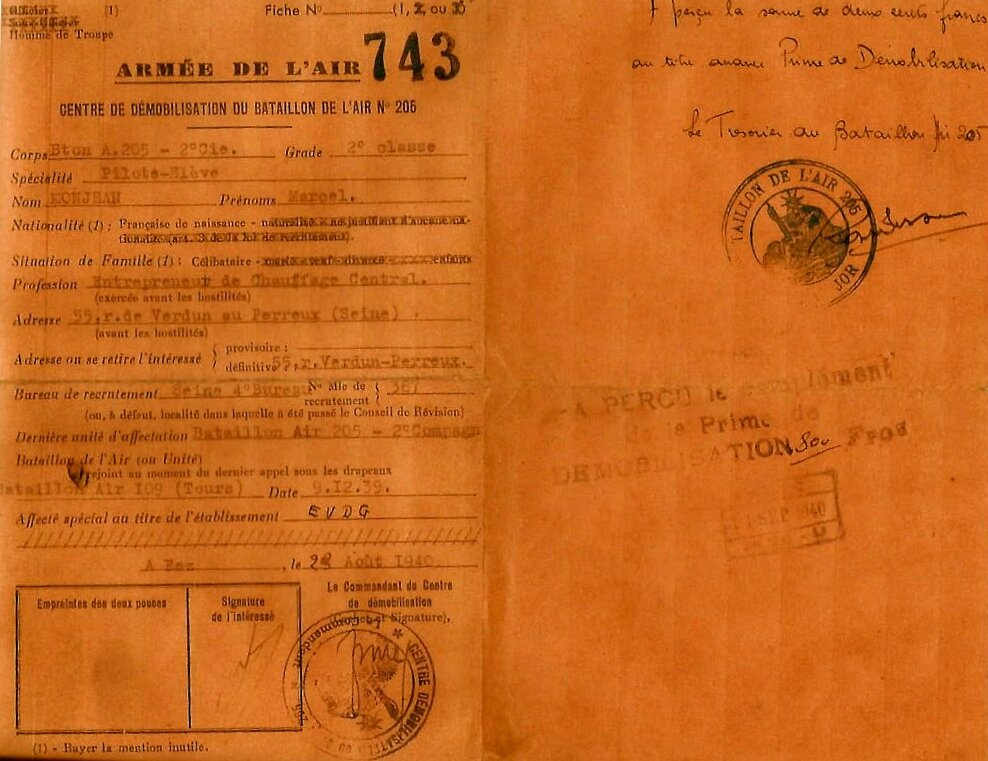 Homme de Troupe
(1)
Fiche N° (1, 2, ou 3)
743
ARMÉE DE L'AIR
CENTRE DE DÉMOBILISATION DU BATAILLON DE L'AIR N° 205
Corps Bton A.205 - 2°Cie. Grade 2° classe
Spécialité Pilote-Elève
Nom MONJEAN Prénoms Marcel.
Nationalité (1) : Française de naissance -
Situation de Famille (1) : Célibataire -
Profession Entrepreneur de Chauffage Central.
(exercée avant les hostilités)
Adresse 55,r.de Verdun au Perreux (Seine) .
(avant les hostilités)
Adresse où se retire l'intéressé { provisoire :
définitive 55,r.Verdun-Perreux.
Bureau de recrutement Seine 4°Bureau N° Mle de recrutement { 387
(ou, à défaut, localité dans laquelle a été passé le Conseil de Révision)
Dernière unité d'affectation Bataillon Air 205 - 2°Compagn
Bataillon de l'Air (ou Unité)
rejoint au moment du dernier appel sous les drapeaux
Bataillon Air 109 (Tours) Date 9.12.39.
Affecté spécial au titre de l'établissement EVDG
A Fez , le 28 Août 1940
Empreintes des deux pouces
Signature de l'intéressé
Le Commandant du Centre
de démobilisation
(Cachet et Signature),
CENTRE DÉMOBILISATEUR
(1) - Rayer la mention inutile.
A perçu la somme de deux cents francs
au titre avance Prime de Démobilisation
Le Trésorier du Bataillon Air 205
BATAILLON DE L'AIR 205
A PERÇU le complément
de la Prime de
DEMOBILISATION 800 Frcs
11 SEP 1940